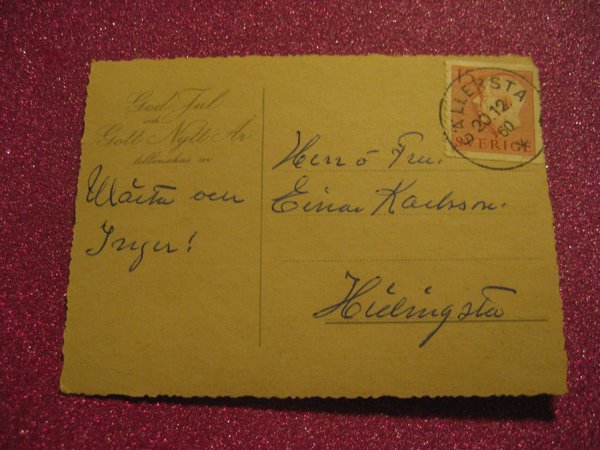 God Jul
och
Gott Nytt År
tillönskas av
Märta och
Inger!
Herr o Fru.
Einar Karlsson.
SÄLLERSTA
20.12
60
SVERIGE